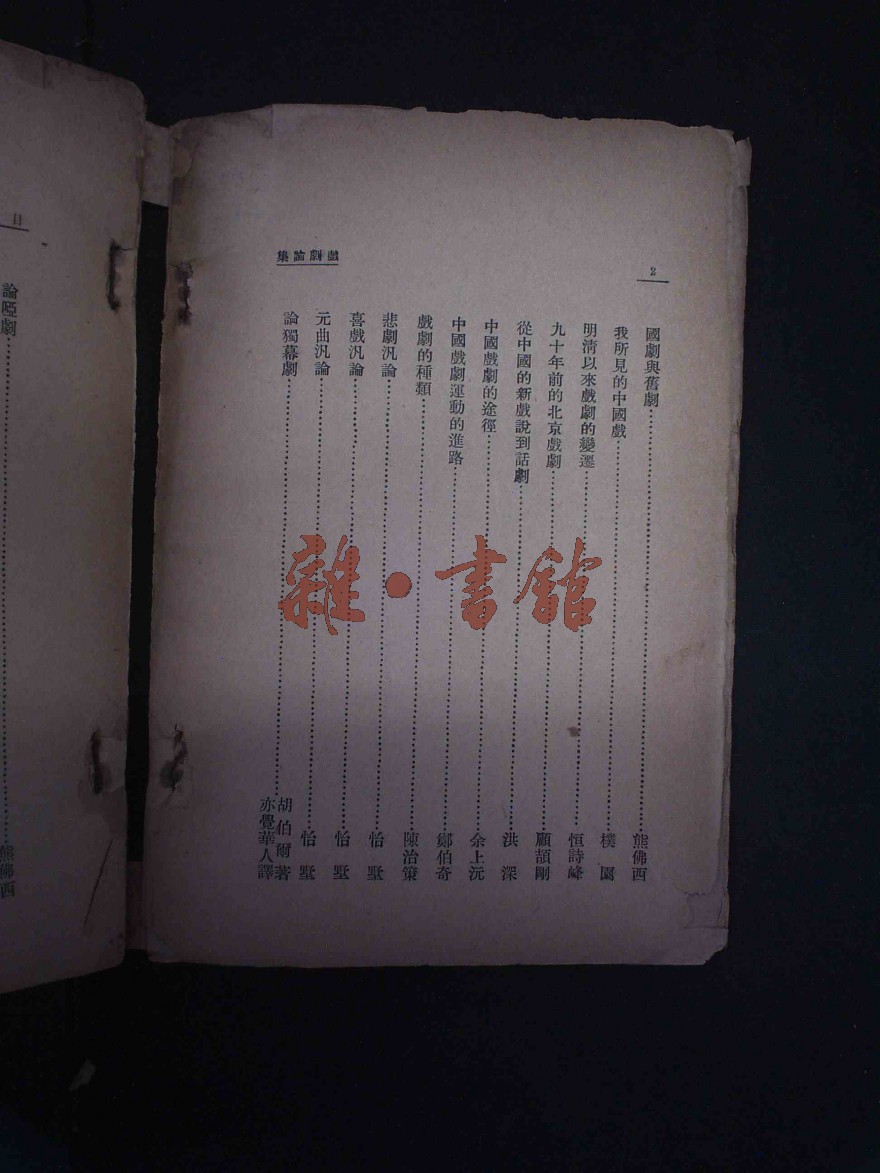 戲劇論集
2
國劇與舊劇⋯⋯熊佛西
我所見的中國戲⋯⋯樸園
明清以來戲劇的變遷⋯⋯恒詩峰
九十年前的北京戲劇⋯⋯顧頡剛
從中國的新戲說到話劇⋯⋯洪深
中國戲劇的途徑⋯⋯余上沅
中國戲劇運動的進路⋯⋯鄭伯奇
戲劇的種類⋯⋯陳治策
悲劇汎論⋯⋯怡墅
喜戲汎論⋯⋯怡墅
元曲汎論⋯⋯怡墅
論獨幕劇⋯⋯胡伯爾著
亦覺華人譯
目
論啞劇⋯⋯熊佛西
雜·書館